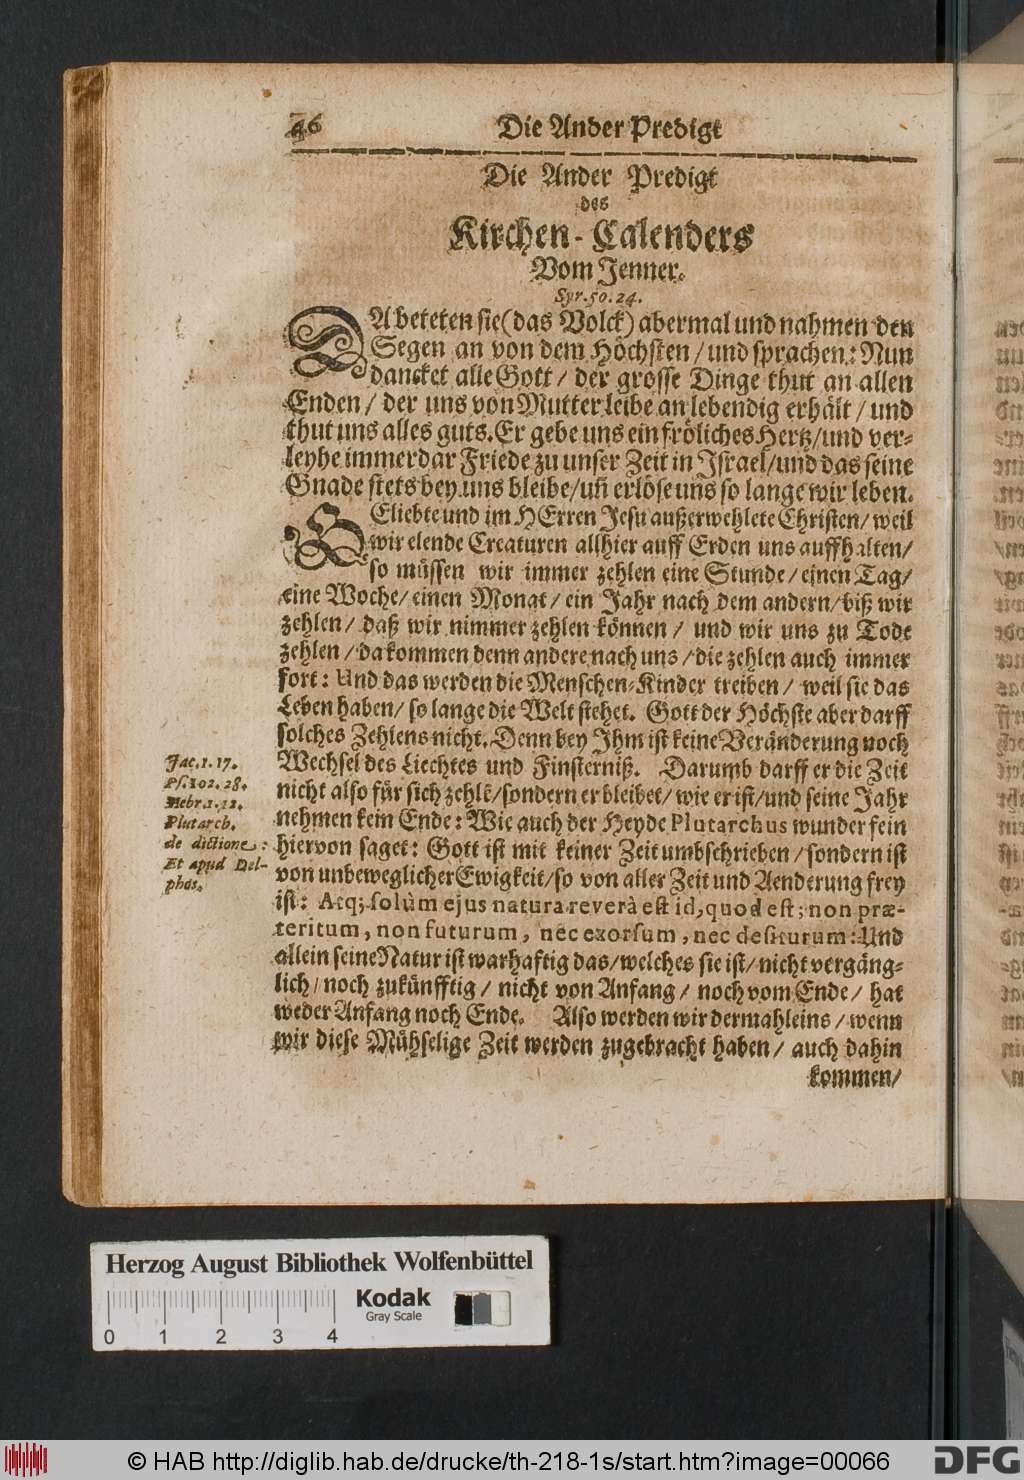 46
Die Ander Predigt
Die Ander Predigt
des
Kirchen-Calenders
Vom Jenner.
Syr. 50. 24.
DA beteten sie (das Volck) abermal und nahmen den
Segen an von dem Höchsten / und sprachen: Nun
dancket alle Gott / der grosse Dinge thut an allen
Enden / der uns von Mutterleibe an lebendig erhält / und
thut uns alles guts. Er gebe uns ein fröliches Hertz / und ver-
leyhe immerdar Friede zu unser Zeit in Israel / und das seine
Gnade stets bey uns bleibe / uñ erlöse uns so lange wir leben.
GEliebte und im HErren Jesu außerwehlete Christen / weil
wir elende Creaturen allhier auff Erden uns auffhalten /
so müssen wir immer zehlen eine Stunde / einen Tag /
eine Woche / einen Monat / ein Jahr nach dem andern / biß wir
zehlen / daß wir nimmer zehlen können / und wir uns zu Tode
zehlen / da kommen denn andere nach uns / die zehlen auch immer
fort: Und das werden die Menschen-Kinder treiben / weil sie das
Leben haben / so lange die Welt stehet. Gott der Höchste aber darff
solches Zehlens nicht. Denn bey Ihm ist keine Veränderung noch
Wechsel des Liechtes und Finsterniß. Darumb darff er die Zeit
nicht also für sich zehlẽ / sondern er bleibet / wie er ist / und seine Jahr
nehmen kein Ende: Wie auch der Heyde Plutarchus wunder fein
hiervon saget: Gott ist mit keiner Zeit umbschrieben / sondern ist
von unbeweglicher Ewigkeit / so von aller Zeit und Aenderung frey
ist: Atq; solùm ejus natura reverà est id, quod est; non præ-
teritum, non futurum, nec exorsum, nec desiturum: Und
allein seine Natur ist warhaftig das / welches sie ist / nicht vergäng-
lich / noch zukünfftig / nicht von Anfang / noch vom Ende / hat
weder Anfang noch Ende. Also werden wir dermahleins / wenn
wir diese Mühselige Zeit werden zugebracht haben / auch dahin
kommen /
Jac. 1. 17.
Ps. 102. 28.
Hebr. 1. 12.
Plutarch.
de dictione:
Et apud Del-
phos.
Herzog August Bibliothek Wolfenbüttel
Kodak
Gray Scale
0 1 2 3 4
© HAB http://diglib.hab.de/drucke/th-218-1s/start.htm?image=00066
DFG